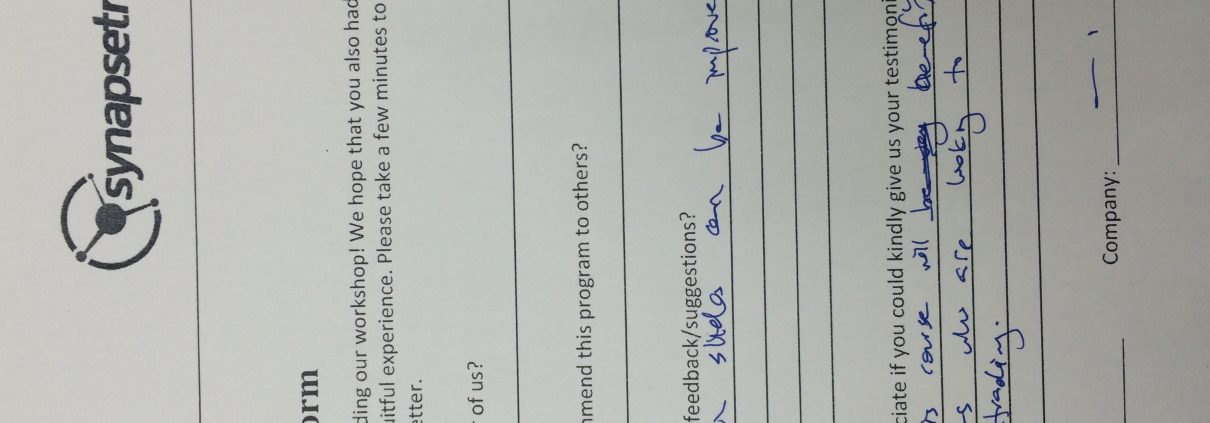 synapsetr
orm
ding our workshop! We hope that you also had
uitful experience. Please take a few minutes to
etter.
of us?
mmend this program to others?
feedback/suggestions?
slides can be improve
ciate if you could kindly give us your testimoni
course will benefi
who are looking to
trading.
Company: